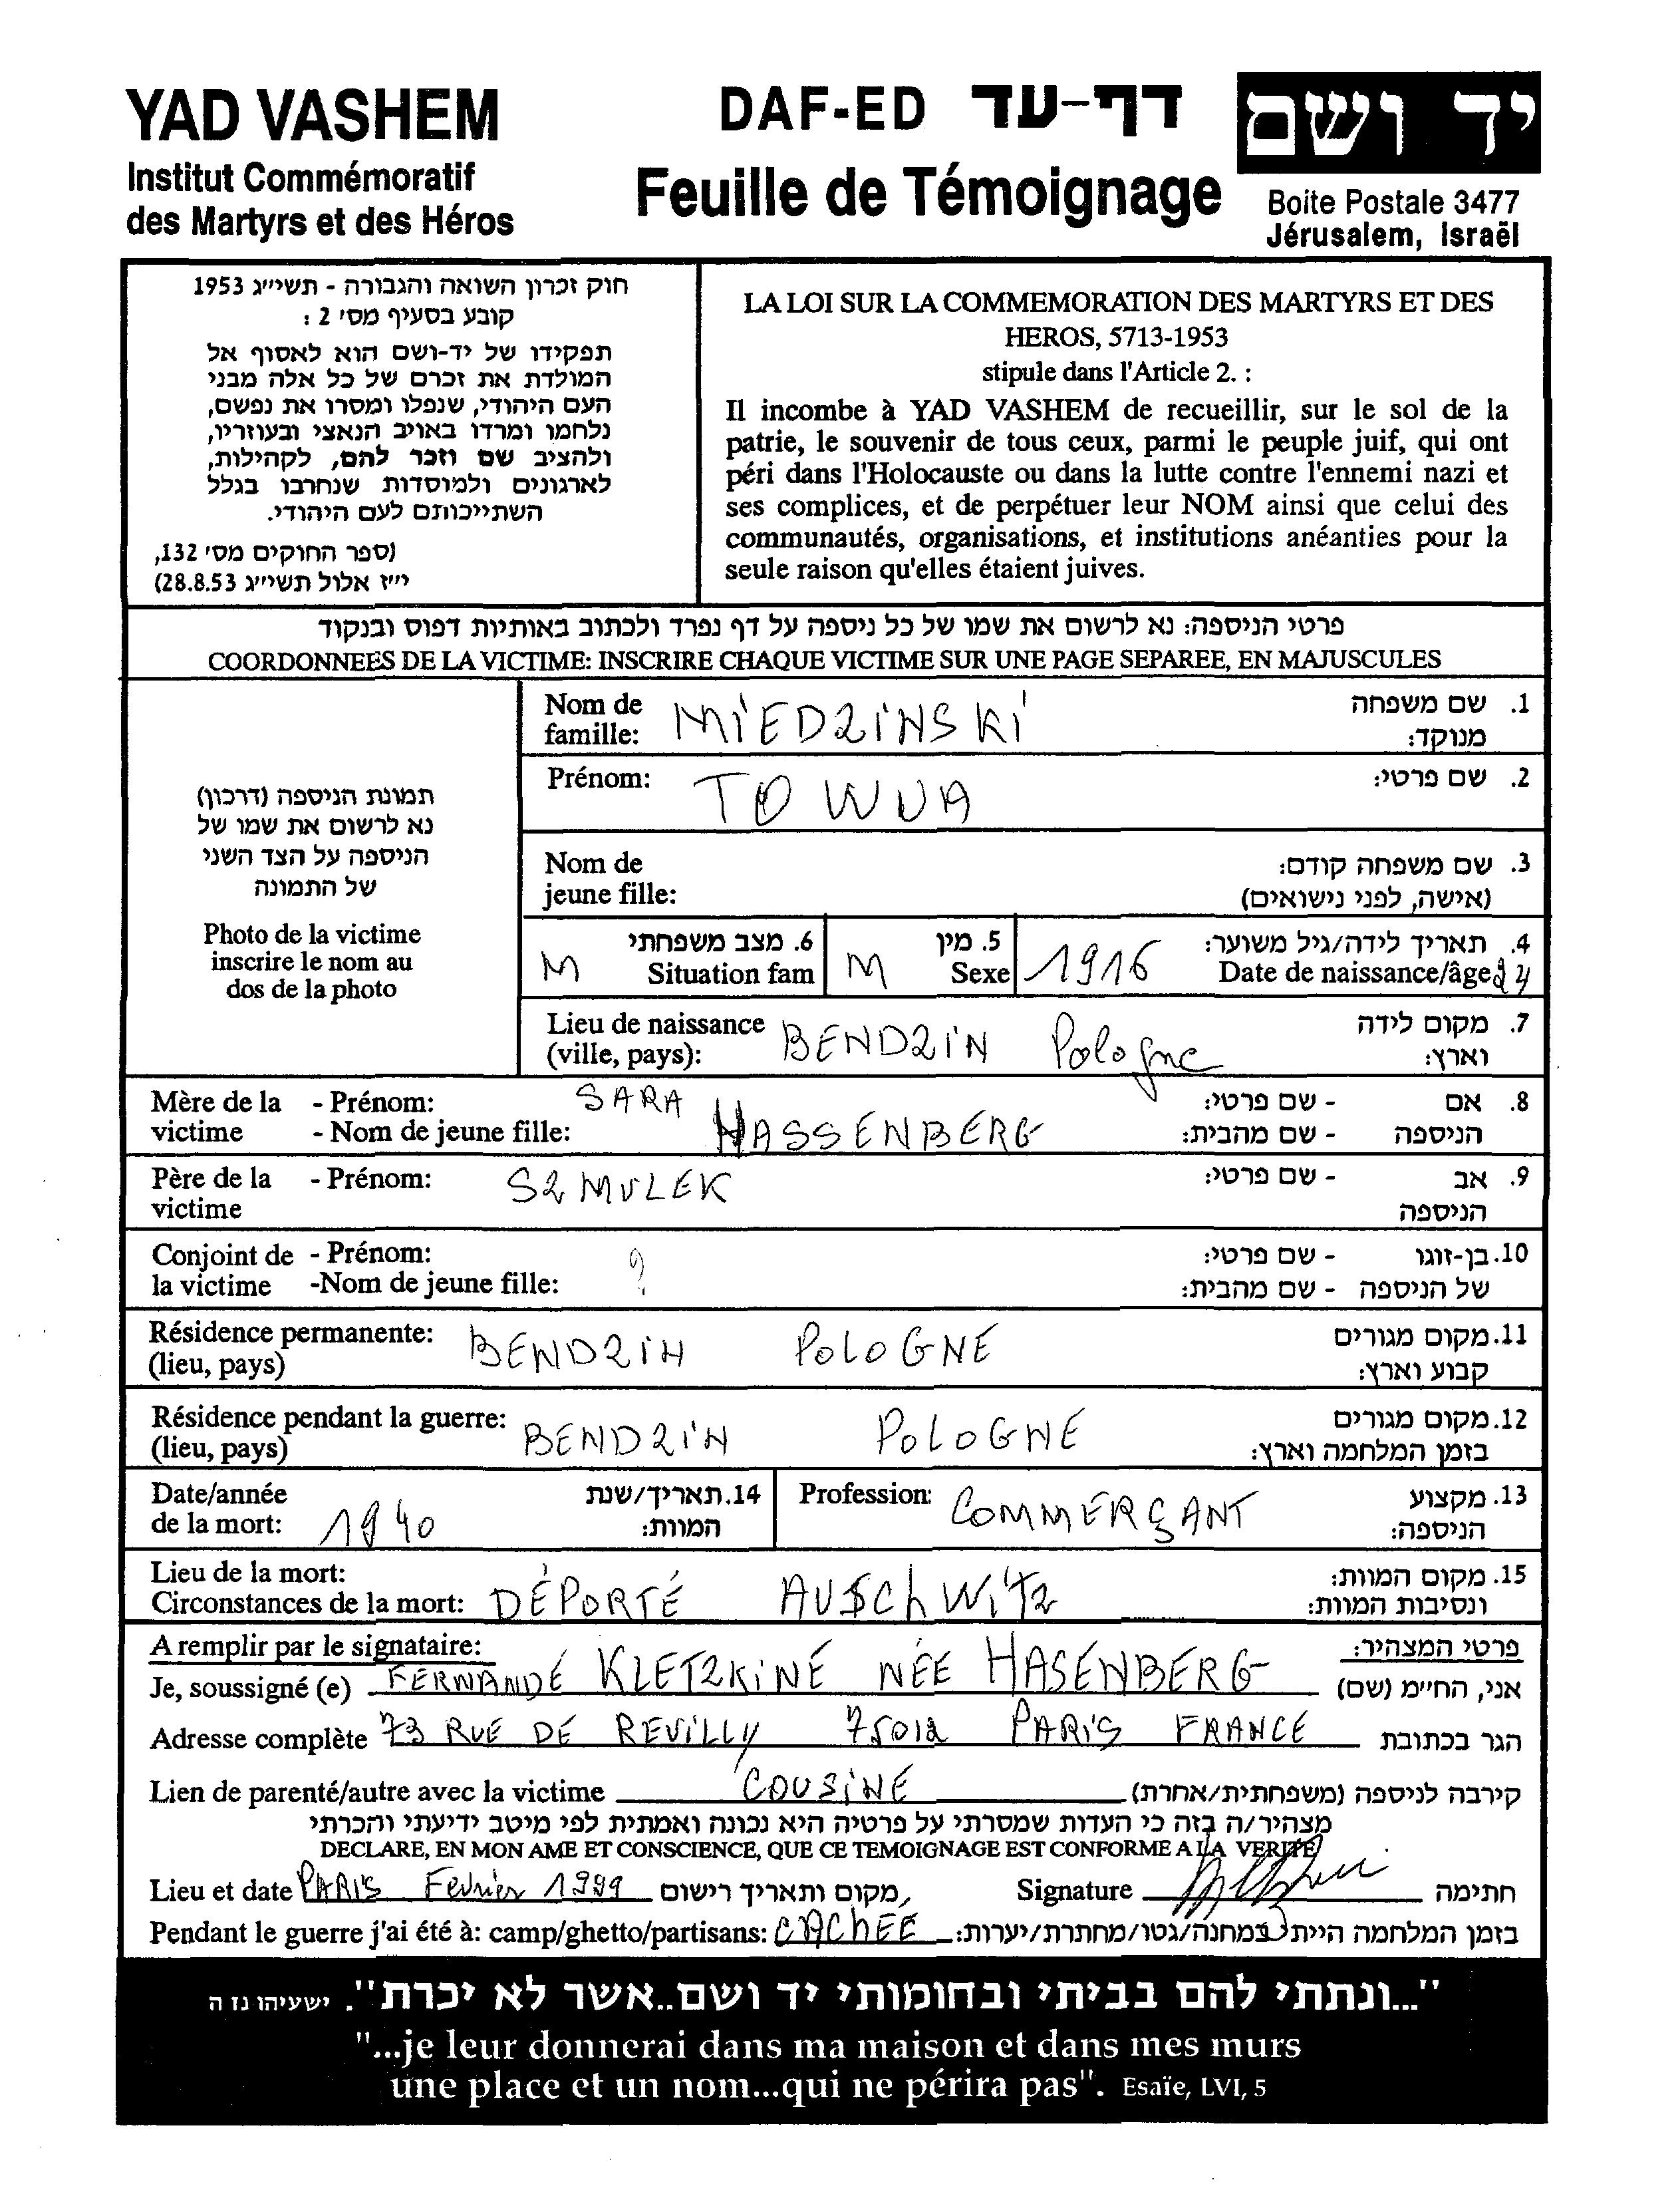 YAD VASHEM
Institut Commémoratif
des Martyrs et des Héros
DAF-ED דף-עד
Feuille de Témoignage
יד ושם
Boite Postale 3477
Jérusalem, Israël
חוק זכרון השואה והגבורה - תשי״ג 1953
קובע בסעיף מס׳ 2 :
תפקידו של יד-ושם הוא לאסוף אל
המולדת את זכרם של כל אלה מבני
העם היהודי, שנפלו ומסרו את נפשם,
נלחמו ומרדו באויב הנאצי ובעוזריו,
ולהציב שם וזכר להם, לקהילות,
לארגונים ולמוסדות שנחרבו בגלל
השתייכותם לעם היהודי.
(ספר החוקים מס׳ 132,
י״ז אלול תשי״ג 28.8.53)
LA LOI SUR LA COMMEMORATION DES MARTYRS ET DES
HEROS, 5713-1953
stipule dans l'Article 2. :
Il incombe à YAD VASHEM de recueillir, sur le sol de la
patrie, le souvenir de tous ceux, parmi le peuple juif, qui ont
péri dans l'Holocauste ou dans la lutte contre l'ennemi nazi et
ses complices, et de perpétuer leur NOM ainsi que celui des
communautés, organisations, et institutions anéanties pour la
seule raison qu'elles étaient juives.
פרטי הניספה: נא לרשום את שמו של כל ניספה על דף נפרד ולכתוב באותיות דפוס ובנקוד
COORDONNEES DE LA VICTIME: INSCRIRE CHAQUE VICTIME SUR UNE PAGE SEPAREE, EN MAJUSCULES
תמונת הניספה (דרכון)
נא לרשום את שמו של
הניספה על הצד השני
של התמונה
Photo de la victime
inscrire le nom au
dos de la photo
Nom de MIEDZINSKI 1. שם משפחה
famille: מנוקד:
Prénom: TOWUA 2. שם פרטי:
Nom de 3. שם משפחה קודם:
jeune fille: (אישה, לפני נישואים)
M 6. מצב משפחתי M 5. מין 1916 4. תאריך לידה/גיל משוער:
Situation fam Sexe Date de naissance/âge 24
Lieu de naissance BENDZIN Pologne 7. מקום לידה
(ville, pays): וארץ:
Mère de la - Prénom: SARA - שם פרטי: 8. אם
victime - Nom de jeune fille: HASSENBERG - שם מהבית: הניספה
Père de la - Prénom: SZMULEK - שם פרטי: 9. אב
victime הניספה
Conjoint de - Prénom: ? - שם פרטי: 10. בן-זוגו
la victime -Nom de jeune fille: - שם מהבית: של הניספה
Résidence permanente: BENDZIN POLOGNE 11. מקום מגורים
(lieu, pays) קבוע וארץ:
Résidence pendant la guerre: BENDZIN POLOGNE 12. מקום מגורים
(lieu, pays) בזמן המלחמה וארץ:
Date/année 14. תאריך/שנת Profession: COMMERÇANT 13. מקצוע
de la mort: 1940 המוות: הניספה:
Lieu de la mort: 15. מקום המוות:
Circonstances de la mort: DÉPORTÉ AUSCHWITZ ונסיבות המוות:
A remplir par le signataire: פרטי המצהיר:
Je, soussigné (e) FERNANDE KLETZKINE NÉE HASENBERG אני, החי״מ (שם)
Adresse complète 73 RUE DE REUILLY 75012 PARIS FRANCE הגר בכתובת
Lien de parenté/autre avec la victime COUSINE קירבה לניספה (משפחתית/אחרת)
מצהיר/ה בזה כי העדות שמסרתי על פרטיה היא נכונה ואמתית לפי מיטב ידיעתי והכרתי
DECLARE, EN MON AME ET CONSCIENCE, QUE CE TEMOIGNAGE EST CONFORME A LA VERITE
Lieu et date PARIS Février 1999 מקום ותאריך רישום Signature חתימה
Pendant le guerre j'ai été à: camp/ghetto/partisans: CACHÉE בזמן המלחמה הייתי במחנה/גטו/מחתרת/יערות:
"...ונתתי להם בביתי ובחומותי יד ושם..אשר לא יכרת". ישעיהו נז ה
"...je leur donnerai dans ma maison et dans mes murs
une place et un nom...qui ne périra pas". Esaïe, LVI, 5